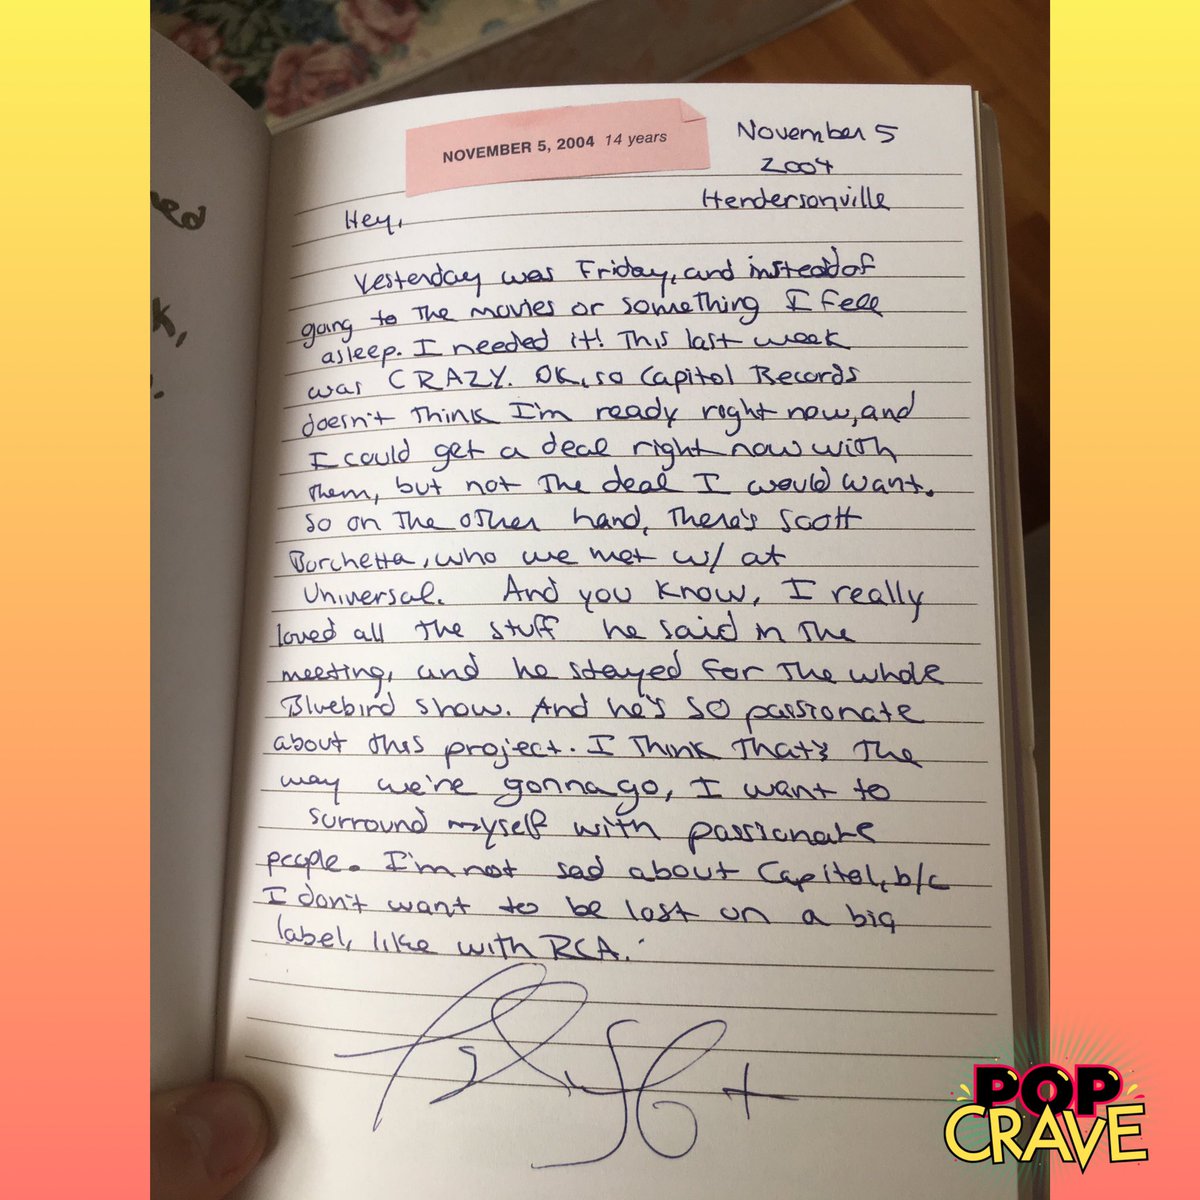 NOVEMBER 5, 2004 14 years
November 5
2004
Hendersonville
Hey,
Yesterday was Friday, and instead of
going to the movies or something I fell
asleep. I needed it! This last week
was CRAZY. OK, so Capitol Records
doesn't think I'm ready right now, and
I could get a deal right now with
them, but not the deal I would want.
So on the other hand, there's Scott
Borchetta, who we met w/ at
Universal. And you know, I really
loved all the stuff he said in the
meeting, and he stayed for the whole
Bluebird show. And he's so passionate
about this project. I think that's the
way we're gonna go, I want to
surround myself with passionate
people. I'm not sad about Capitol, b/c
I don't want to be lost on a big
label, like with RCA.
POP
CRAVE